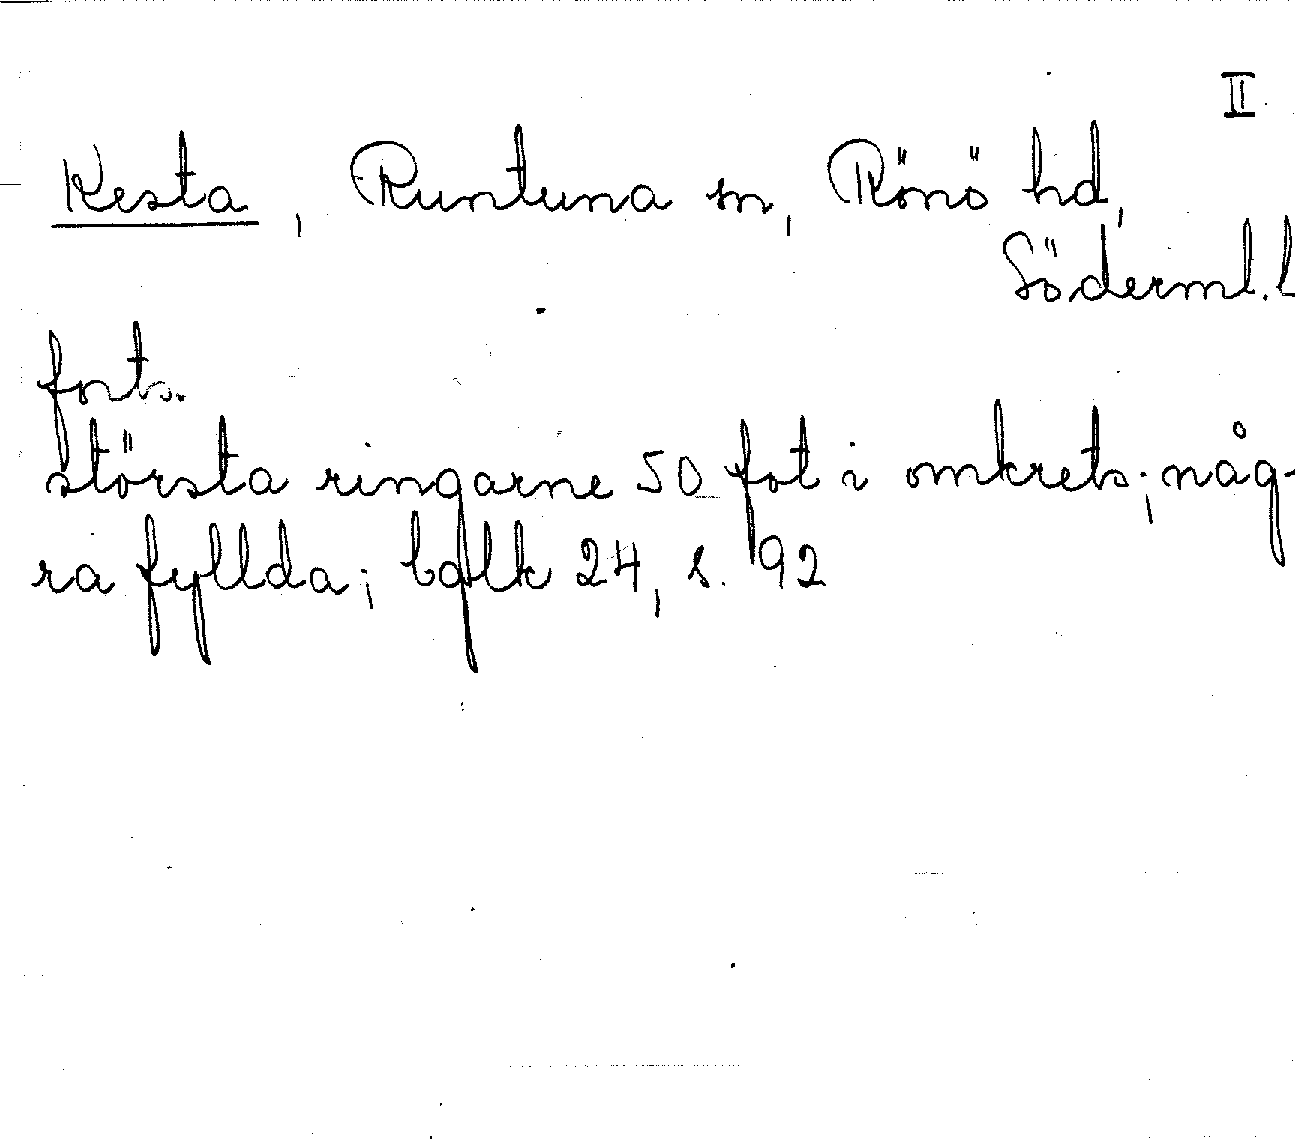 II
Kesta, Runtuna sn, Rönö hd,
Söderml. l
forts.
största ringarne 50 fot i omkrets; någ-
ra fyllda; balk 24, s. 92